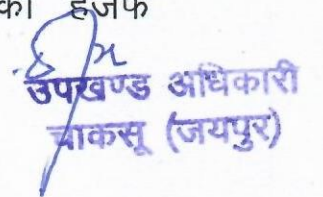 का हजफ
उपखण्ड अधिकारी
चाकसू (जयपुर)